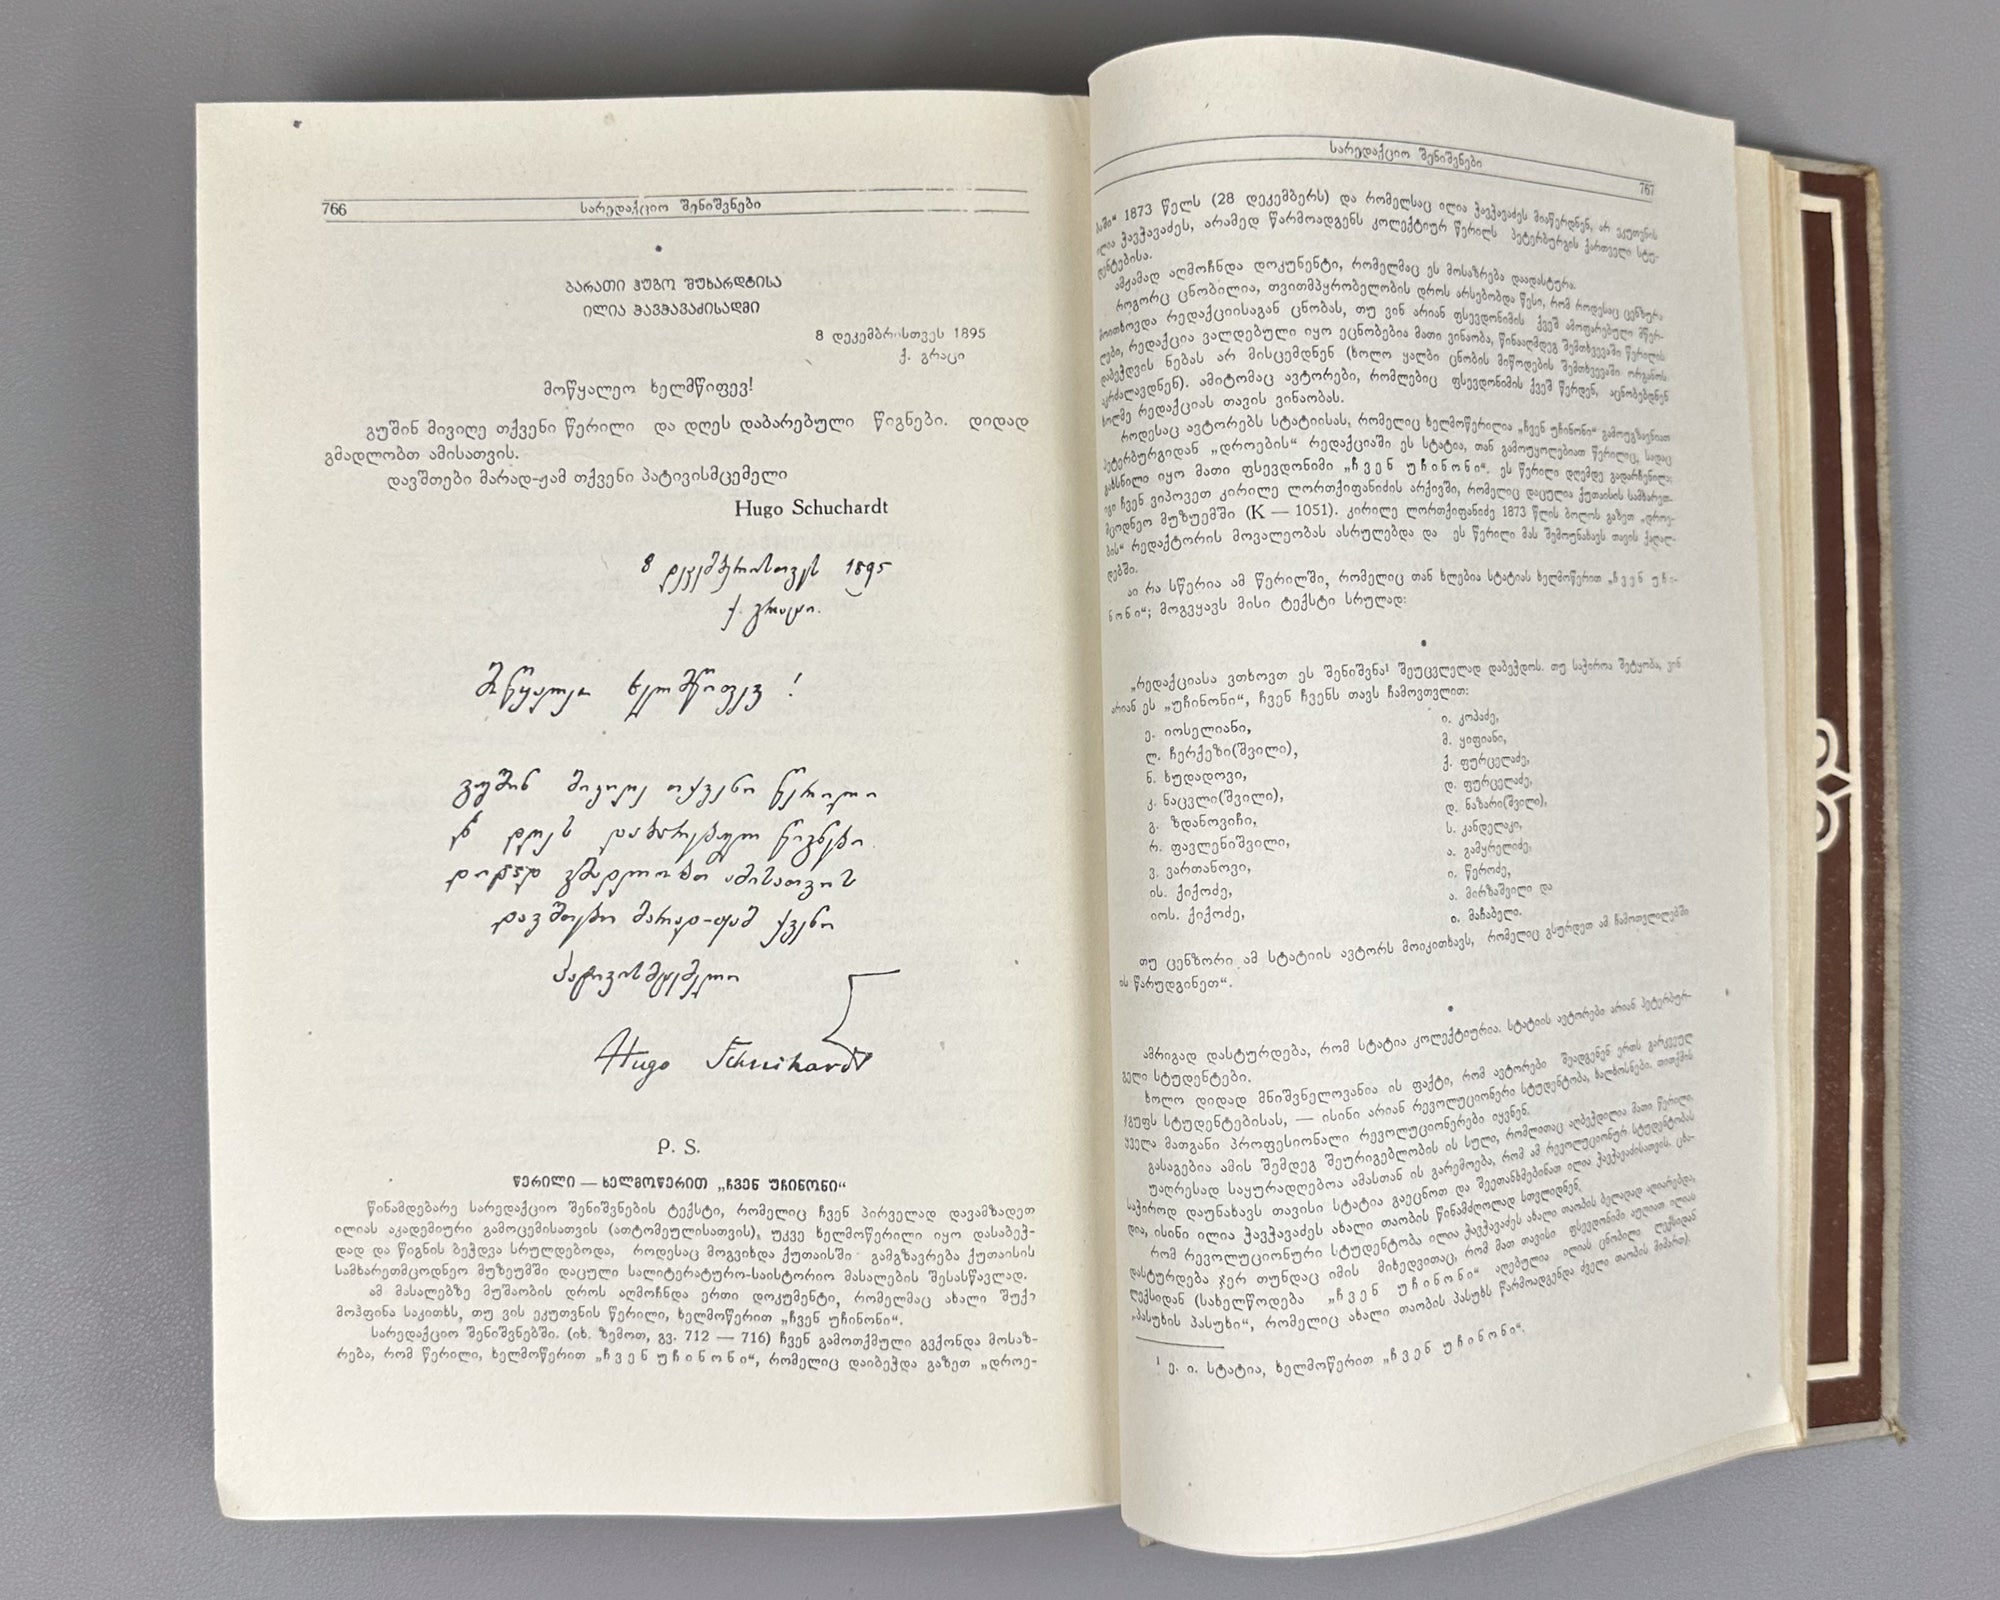 766
სარედაქციო შენიშვნები
ბარათი ჰუგო შუხარდტისა
ილია ჭავჭავაძისადმი
8 დეკემბრისთვეს 1895
ქ. გრაცი
მოწყალეო ხელმწიფევ!
გუშინ მივიღე თქვენი წერილი და დღეს დაბარებული წიგნები. დიდად
გმადლობთ ამისათვის.
დავშთები მარად-ჟამ თქვენი პატივისმცემელი
Hugo Schuchardt
8 დეკემბრისთვეს 1895
ქ. გრაცი.
მოწყალეო ხელმწიფევ!
გუშინ მივიღე თქვენი წერილი
და დღეს დაბარებული წიგნები.
დიდად გმადლობთ ამისათვის
დავშთები მარად-ჟამ თქვენი
პატივისმცემელი
Hugo Schuchardt
P. S.
წერილი — ხელმოწერით „ჩვენ უჩინონი“
წინამდებარე სარედაქციო შენიშვნების ტექსტი, რომელიც ჩვენ პირველად დავამზადეთ
ილიას აკადემიური გამოცემისათვის (ათტომეულისათვის), უკვე ხელმოწერილი იყო დასაბეჭ-
დად და წიგნის ბეჭდვა სრულდებოდა, როდესაც მოგვიხდა ქუთაისში გამგზავრება ქუთაისის
სამხარეთმცოდნეო მუზეუმში დაცული სალიტერატურო-საისტორიო მასალების შესასწავლად.
ამ მასალებზე მუშაობის დროს აღმოჩნდა ერთი დოკუმენტი, რომელმაც ახალი შუქი
მოჰფინა საკითხს, თუ ვის ეკუთვნის წერილი, ხელმოწერით „ჩვენ უჩინონი“.
სარედაქციო შენიშვნებში. (იხ. ზემოთ, გვ. 712 — 716) ჩვენ გამოთქმული გვქონდა მოსაზ-
რება, რომ წერილი, ხელმოწერით „ჩვენ უჩინონი“, რომელიც დაიბეჭდა გაზეთ „დროე-
სარედაქციო შენიშვნები
767
ბაში“ 1873 წელს (28 დეკემბერს) და რომელსაც ილია ჭავჭავაძეს მიაწერდნენ, არ ეკუთვნის
ილია ჭავჭავაძეს, არამედ წარმოადგენს კოლექტიურ წერილს პეტერბურგის ქართველი სტუ-
დენტებისა.
ამჟამად აღმოჩნდა დოკუნენტი, რომელმაც ეს მოსაზრება დაადასტურა.
როგორც ცნობილია, თვითმპყრობელობის დროს არსებობდა წესი, რომ როდესაც ცენზურა
მოითხოვდა რედაქციისაგან ცნობას, თუ ვინ არიან ფსევდონიმის ქვეშ ამოფარებული მწერ-
ლები, რედაქცია ვალდებული იყო ეცნობებია მათი ვინაობა, წინააღმდეგ შემთხვევაში წერილის
დაბეჭდვის ნებას არ მისცემდნენ (ხოლო ყალბი ცნობის მიწოდების შემთხვევაში ორგანოს
აკრძალავდნენ). ამიტომაც ავტორები, რომლებიც ფსევდონიმის ქვეშ წერდენ, აცნობებდნენ
ხოლმე რედაქციას თავის ვინაობას.
როდესაც ავტორებს სტატიისას, რომელიც ხელმოწერილია „ჩვენ უჩინონი“ გამოუგზავნიათ
პეტერბურგიდან „დროების“ რედაქციაში ეს სტატია, თან გამოუყოლებიათ წერილიც, სადაც
გახსნილი იყო მათი ფსევდონიმი „ჩვენ უჩინონი“. ეს წერილი დღემდე გადარჩენილა;
იგი ჩვენ ვიპოვეთ კირილე ლორთქიფანიძის არქივში, რომელიც დაცულია ქუთაისის სამხარეთ-
მცოდნეო მუზუემში (K — 1051). კირილე ლორთქიფანიძე 1873 წლის ბოლოს გაზეთ „დროე-
ბის“ რედაქტორის მოვალეობას ასრულებდა და ეს წერილი მას შემოუნახავს თავის ქაღალ-
დებში.
აი რა სწერია ამ წერილში, რომელიც თან ხლებია სტატიას ხელმოწერით „ჩვენ უჩი-
ნონი“; მოგვყავს მისი ტექსტი სრულად:
„რედაქციასა ვთხოვთ ეს შენიშვნა¹ შეუცვლელად დაბეჭდოს. თუ საჭიროა შეტყობა, ვინ
არიან ეს „უჩინონი“, ჩვენ ჩვენს თავს ჩამოვთვლით:
ე. იოსელიანი,
ლ. ჩერქეზი(შვილი),
ნ. ხუდადოვი,
კ. ნაცვლი(შვილი),
გ. ზდანოვიჩი,
რ. ფავლენიშვილი,
ვ. ვართანოვი,
ის. ქიქოძე,
იოს. ქიქოძე,
ი. კოპაძე,
მ. ყიფიანი,
ქ. ფურცელაძე,
დ. ფურცელაძე,
დ. ნაზარი(შვილი),
ს. კანდელაკი,
ა. გამყრელიძე,
ი. წეროძე,
ა. მირზაშვილი და
ი. მაჩაბელი.
თუ ცენზორი ამ სტატიის ავტორს მოიკითხავს, რომელიც გსურდეთ ამ ჩამოთვლილებში
ის წარუდგინეთ“.
ამრიგად დასტურდება, რომ სტატია კოლექტიურია. სტატიის ავტორები არიან პეტერბურ-
გელი სტუდენტები.
ხოლო დიდად მნიშვნელოვანია ის ფაქტი, რომ ავტორები შეადგენენ ერთს გარკვეულ
ჯგუფს სტუდენტებისას, — ისინი არიან რევოლუციონერი სტუდენტობა, ხალხოსნები. თითქმის
ყველა მათგანი პროფესიონალი რევოლუციონერები იყვნენ.
გასაგებია ამის შემდეგ შეურიგებლობის ის სული, რომლითაც აღბეჭდილია მათი წერილი.
უაღრესად საყურადღებოა ამასთან ის გარემოება, რომ ამ რევოლუციონურ სტუდენტობას
საჭიროდ დაუნახავს თავისი სტატია გაეცნოთ და შეეთანხმებინათ ილია ჭავჭავაძისათვის. ცხა-
დია, ისინი ილია ჭავჭავაძეს ახალი თაობის წინამძღოლად სთვლიდნენ.
რომ რევოლუციონური სტუდენტობა ილია ჭავჭავაძეს ახალი თაობის ბელადად აღიარებდა,
დასტურდება ჯერ თუნდაც იმის მიხედვითაც, რომ მათ თავისი ფსევდონიმი აუღიათ ილიას
ლექსიდან (სახელწოდება „ჩვენ უჩინონი“ აღებულია ილიას ცნობილი ლექსიდან
„პასუხის პასუხი“, რომელიც ახალი თაობის პასუხს წარმოადგენდა ძველი თაობის მიმართ).
¹ ე. ი. სტატია, ხელმოწერით „ჩვენ უჩინონი“.